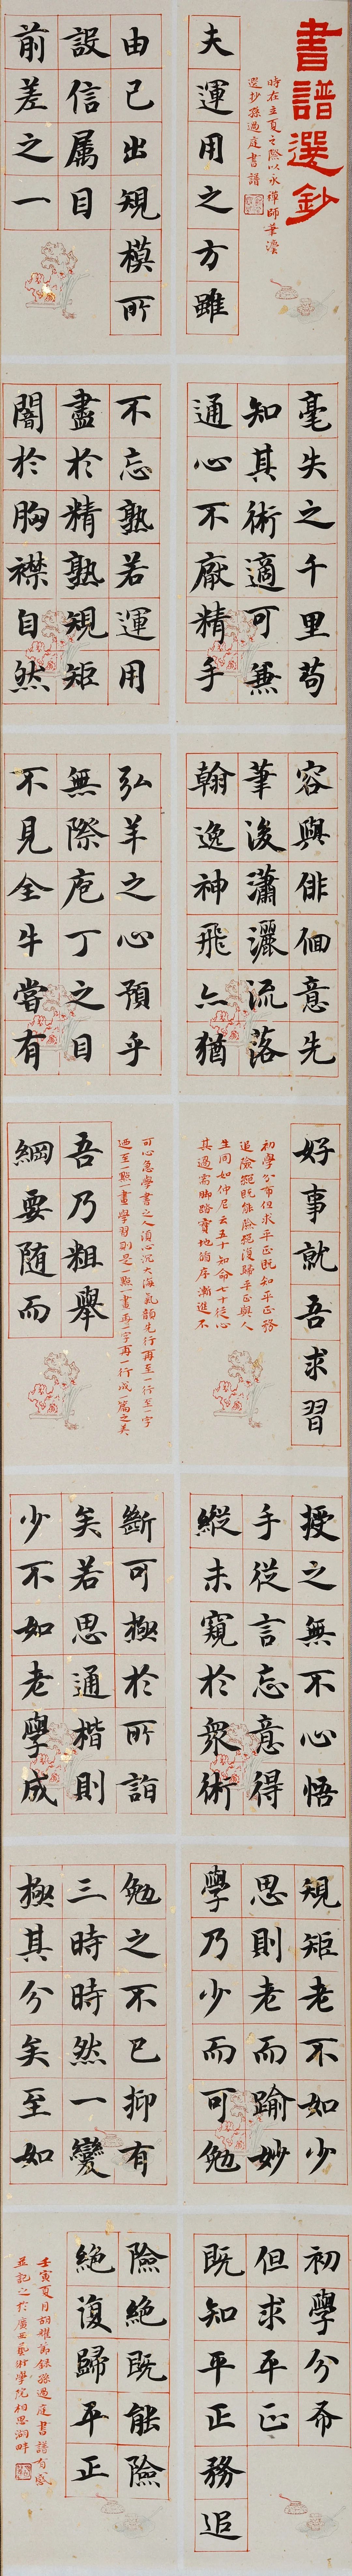 書譜選鈔
時在立夏之際以永禪師筆濃
選抄孫過庭書譜
夫運用之方雖
由己出規模所
設信屬目
前差之一
毫失之千里苟
知其術適可兼
通心不厭精手
不忘熟若運用
盡於精熟規矩
闇於胸襟自然
容與徘徊意先
筆後瀟灑流落
翰逸神飛亦猶
弘羊之心預乎
無際庖丁之目
不見全牛當有
好事就吾求習
初學分布但求平正既知平正務
追險絕既能險絕復歸平正與人
生同如仲尼云五十知命七十從心
其過需脚踏實地循序漸進不
可心急學書之人須心沉大海氣韻先行再至一行至一字
過至一點一畫學習則是一點一畫再一字再一行成一篇之美
吾乃粗舉
綱要随而
授之無不心悟
手從言忘意得
縱未窺於眾術
斷可極於所詣
矣若思通楷則
少不如老學成
規矩老不如少
思則老而踰妙
學乃少而可勉
勉之不已抑有
三時時然一變
極其分矣至如
初學分布
但求平正
既知平正務追
險絕既能險
絕復歸平正
壬寅夏月胡耀錄孫過庭書譜有感
並記之於廣西藝術學院相思湖畔